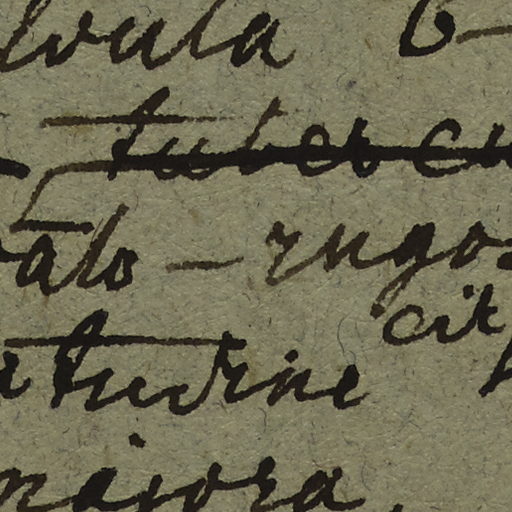 lvula 6-
tubercu
ato - rugo-
cit
tudine
majora,